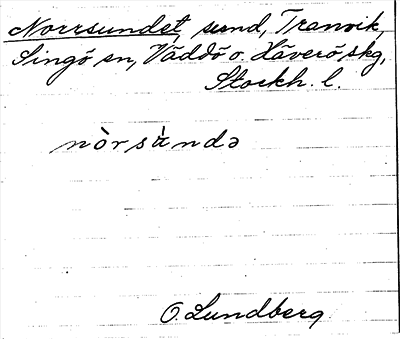 Norrsundet, sund, Tranvik,
Singö sn, Väddö o. Häverö skg,
Stockh. l.
nòrsùndə
O. Lundberg